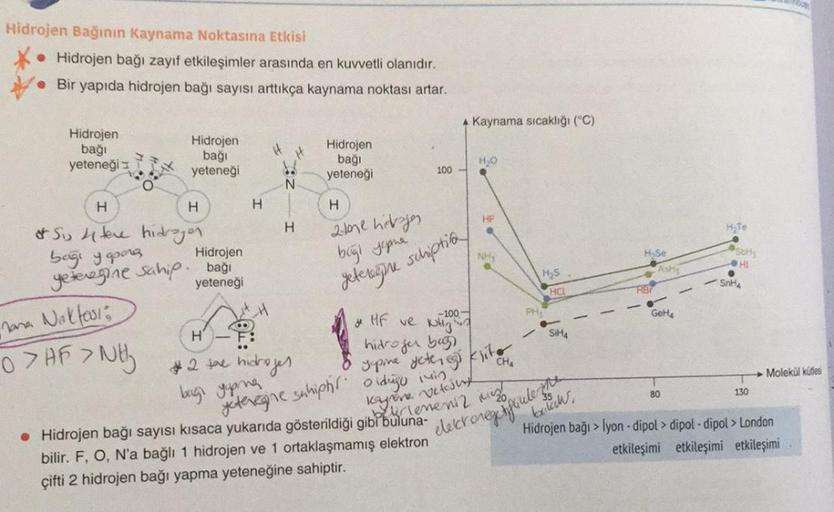 Hidrojen Bağının Kaynama Noktasına Etkisi
• Hidrojen bağı zayıf etkileşimler arasında en kuvvetli olanıdır.
• Bir yapıda hidrojen bağı sayısı arttıkça kaynama noktası artar.
Hidrojen
bağı
yeteneği
Hidrojen
bağı
yeteneği
O
H
H
H H
Hidrojen
bağı
yeteneği
N
H
H
H
* Su 4 tane hidrojen
bağı yapma
yeteneğine sahip.
Hidrojen
bağı
yeteneği
H
H – F:
* 2 tane hidrojen
bağı yapma
yeteneğine sahiptir.
2 tane hidrojen
bağı yapma
yeteneğine sahiptir
Noktası:
O > HF > NH3
* HF ve NH3
hidrojen bağı
yapma yeteneği eşit
olduğu için
kaynama noktasını
belirlememiz için
elektronegatifliklerine
bakılır.
Kaynama sıcaklığı (°C)
100
-100
H₂O
HF
NH₃
H₂S
HCl
PH₃
SiH₄
CH₄
H₂Se
AsH₃
HBr
GeH₄
H₂Te
SbH₃
HI
SnH₄
20
35
80
130
Molekül kütlesi
• Hidrojen bağı sayısı kısaca yukarıda gösterildiği gibi buluna-
bilir. F, O, N'a bağlı 1 hidrojen ve 1 ortaklaşmamış elektron
çifti 2 hidrojen bağı yapma yeteneğine sahiptir.
Hidrojen bağı > İyon - dipol > dipol - dipol > London
etkileşimi etkileşimi etkileşimi